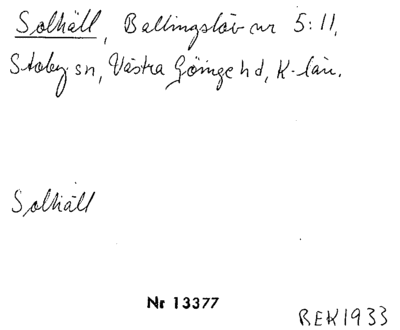 Solhäll, Ballingslöv nr 5:11,
Stoby sn, Västra Göinge hd, K-län.
Solhäll
Nr 13377
BEK1933